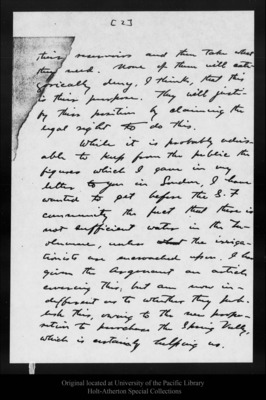 [2]
their reservoirs and then take what
they need. None of them will cate-
gorically deny, I think, that this
is their purpose. They will justi-
fy their position by claiming the
legal right to do this.
While it is probably advis-
able to keep from the public the
figures which I gave in my
letter to you in Sunday, I have
wanted to get before the S.F.
community the fact that there is
not sufficient water in the Tu-
olumne, unless the irriga-
tionists are encroached upon. I have
given the Argonaut an article
covering this, but am now in-
different as to whether they pub-
lish this, owing to the new propo-
sition to purchase the Spring Valley,
which is certainly helping us.
Original located at University of the Pacific Library
Holt-Atherton Special Collections